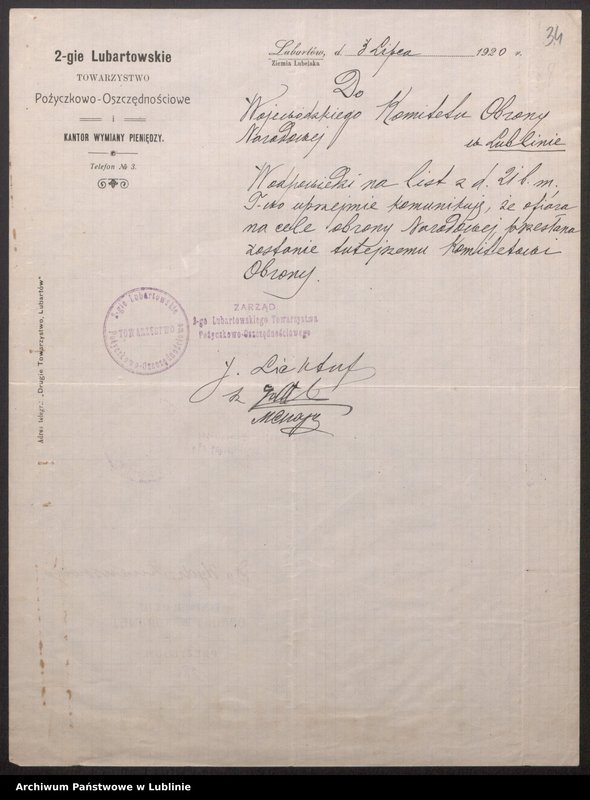 34
2-gie Lubartowskie
TOWARZYSTWO
Pożyczkowo-Oszczędnościowe
i
KANTOR WYMIANY PIENIĘDZY.
Telefon № 3.
Lubartów, d. 3 Lipca 1920 r.
Ziemia Lubelska
Do
Wojewódzkiego Komitetu Obrony
Narodowej
w Lublinie
W odpowiedzi na list z d. 21 b. m.
T-wo uprzejmie komunikuje, że ofiara
na cele obrony Narodowej przesłana
zostanie tutejszemu Komitetowi
Obrony.
2-gie Lubartowskie
TOWARZYSTWO
Pożyczkowo-Oszczędnościowe
ZARZĄD
2-go Lubartowskiego Towarzystwa
Pożyczkowo-Oszczędnościowego
Adres telegr.: „Drugie Towarzystwo, Lubartów"
Archiwum Państwowe w Lublinie